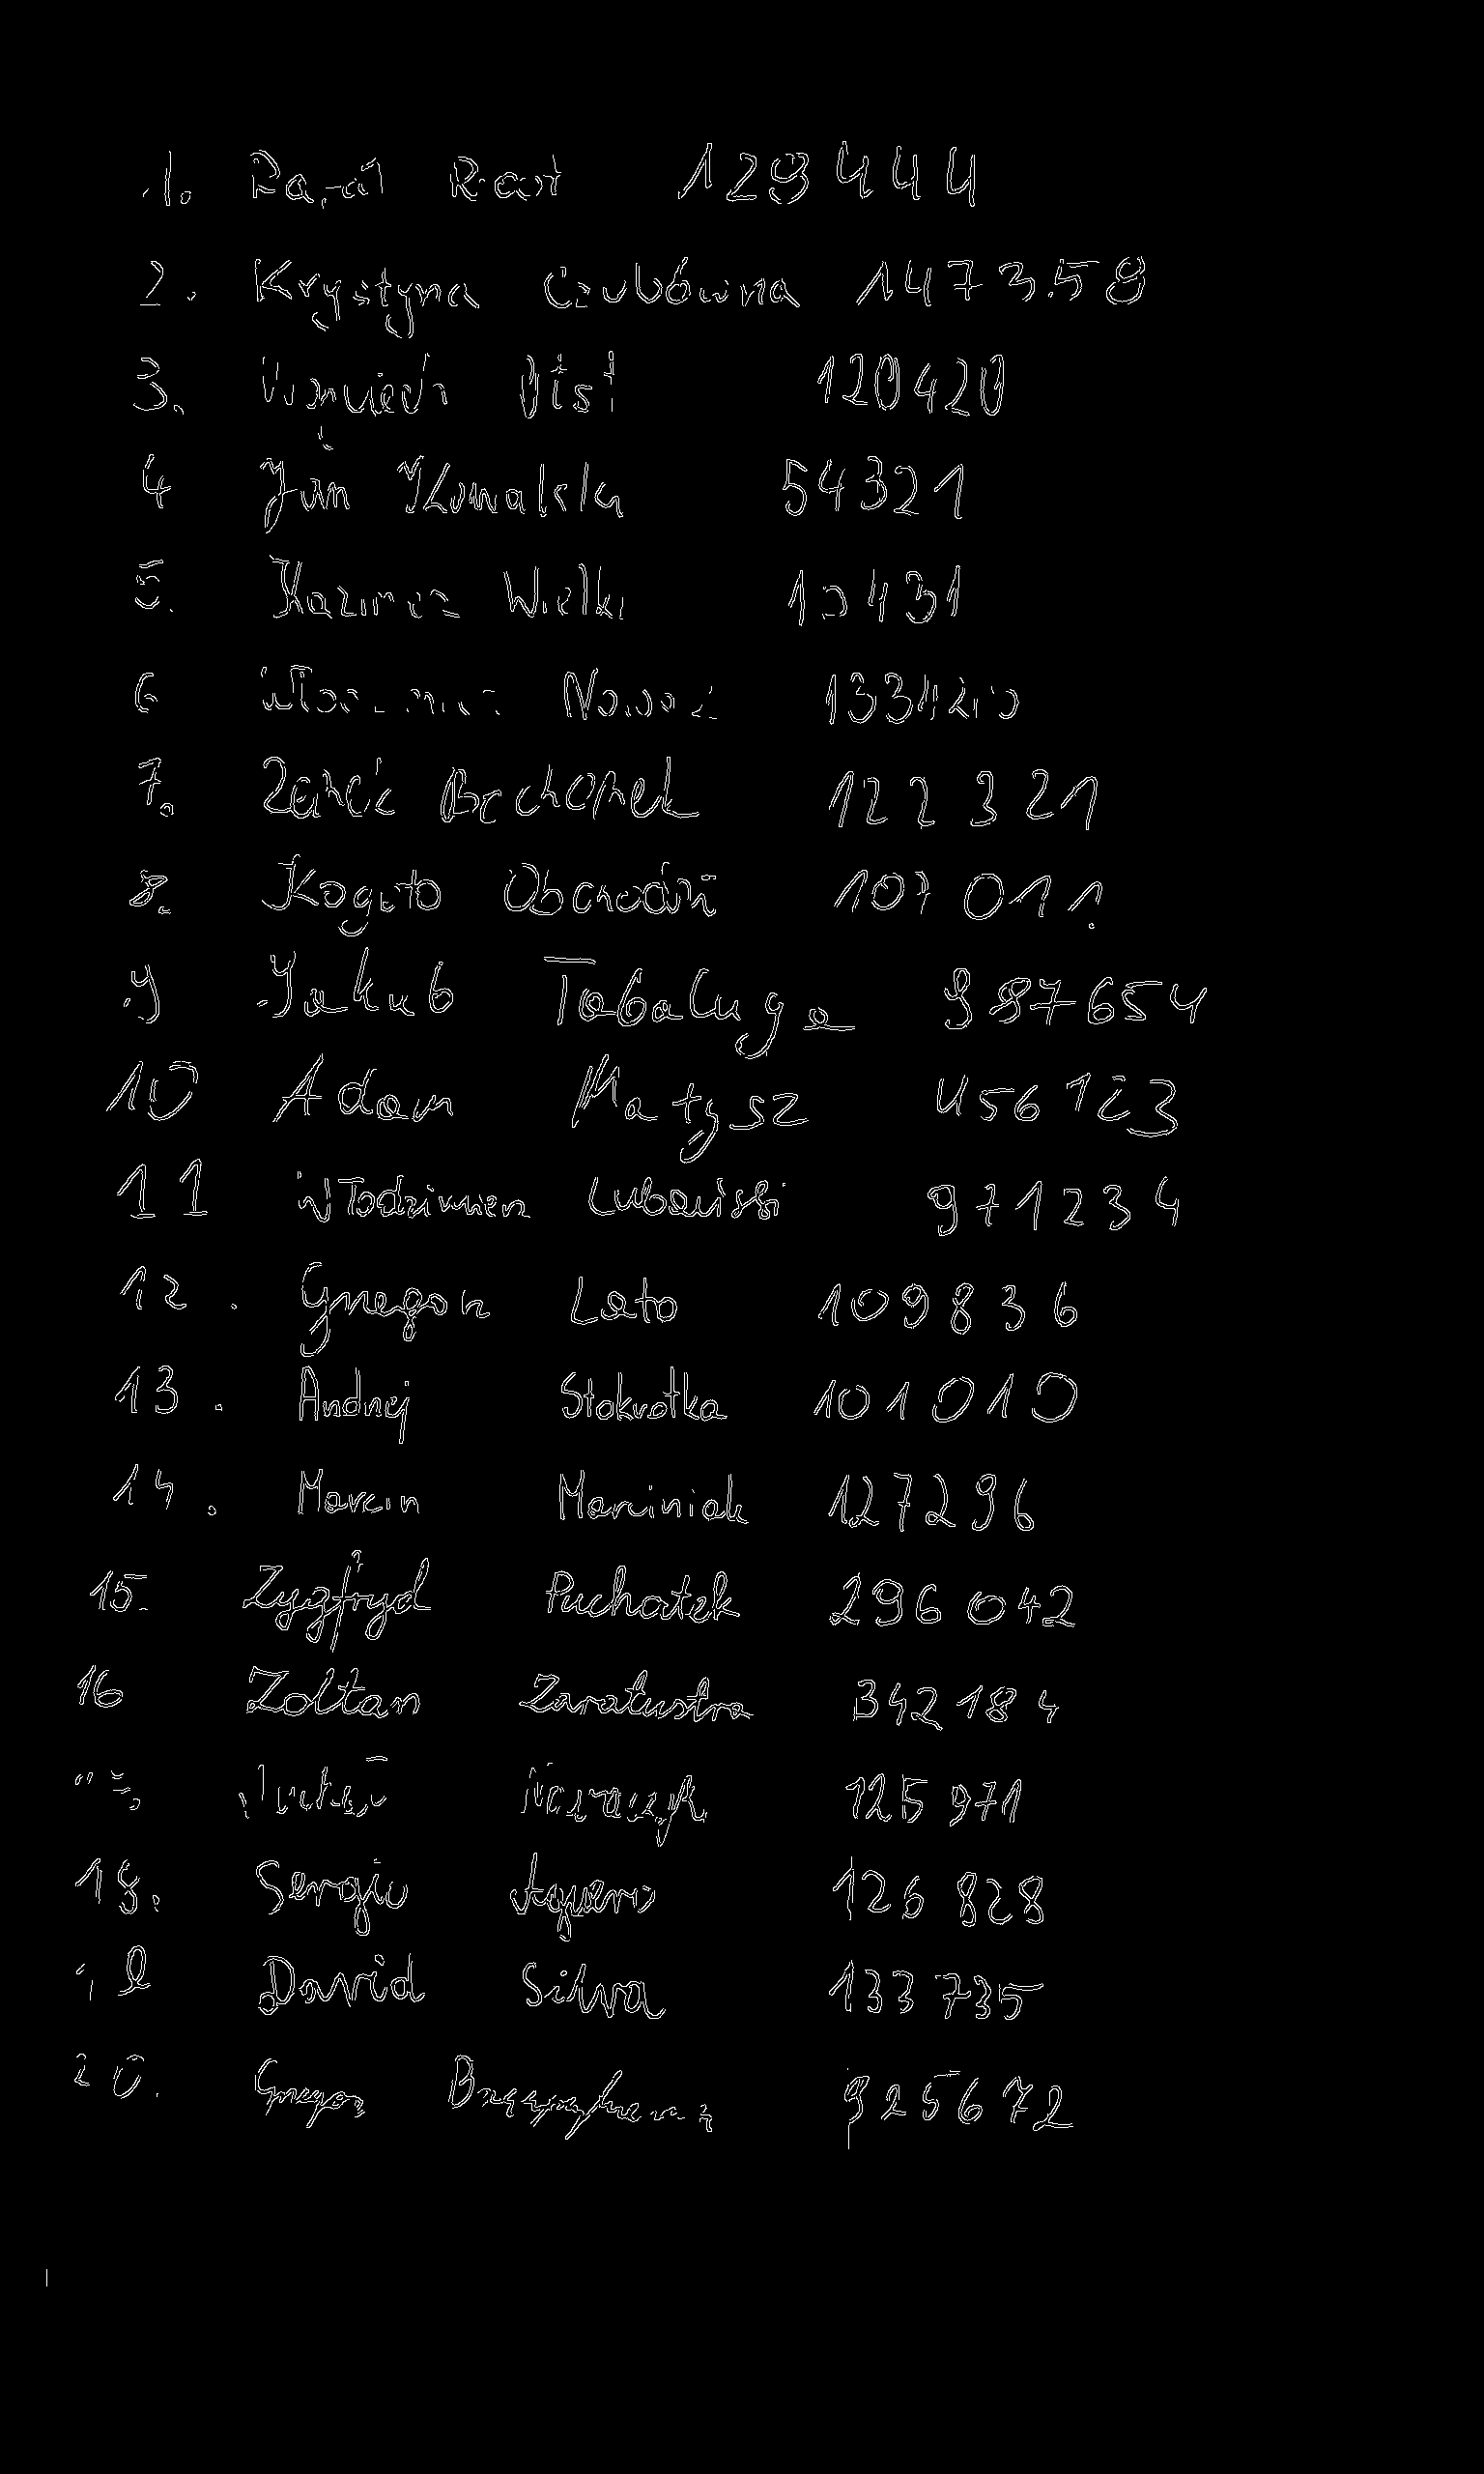 1. Rafał 129444
2. Krystyna Czubówna 147358
3. 120420
4 Jan Kowalski 54321
5. Kazimierz Wielki 10431
6 Nowak
7. Bęchonek 122321
8. Kogoto Obchodzi 107011
9 Jakub Tabaluga 987654
10 Adam Matysz 456123
11 Włodzimierz Lubański 971234
12. Grzegorz Lato 109836
13. Andrzej Stokrotka 101010
14. Marcin Marciniak 127296
15. Zygfryd Puchatek 296042
16 Zoltan Zaratustra 342184
125971
18. Sergio Aguero 126828
David Silva 133735
20. Grzegorz 925672